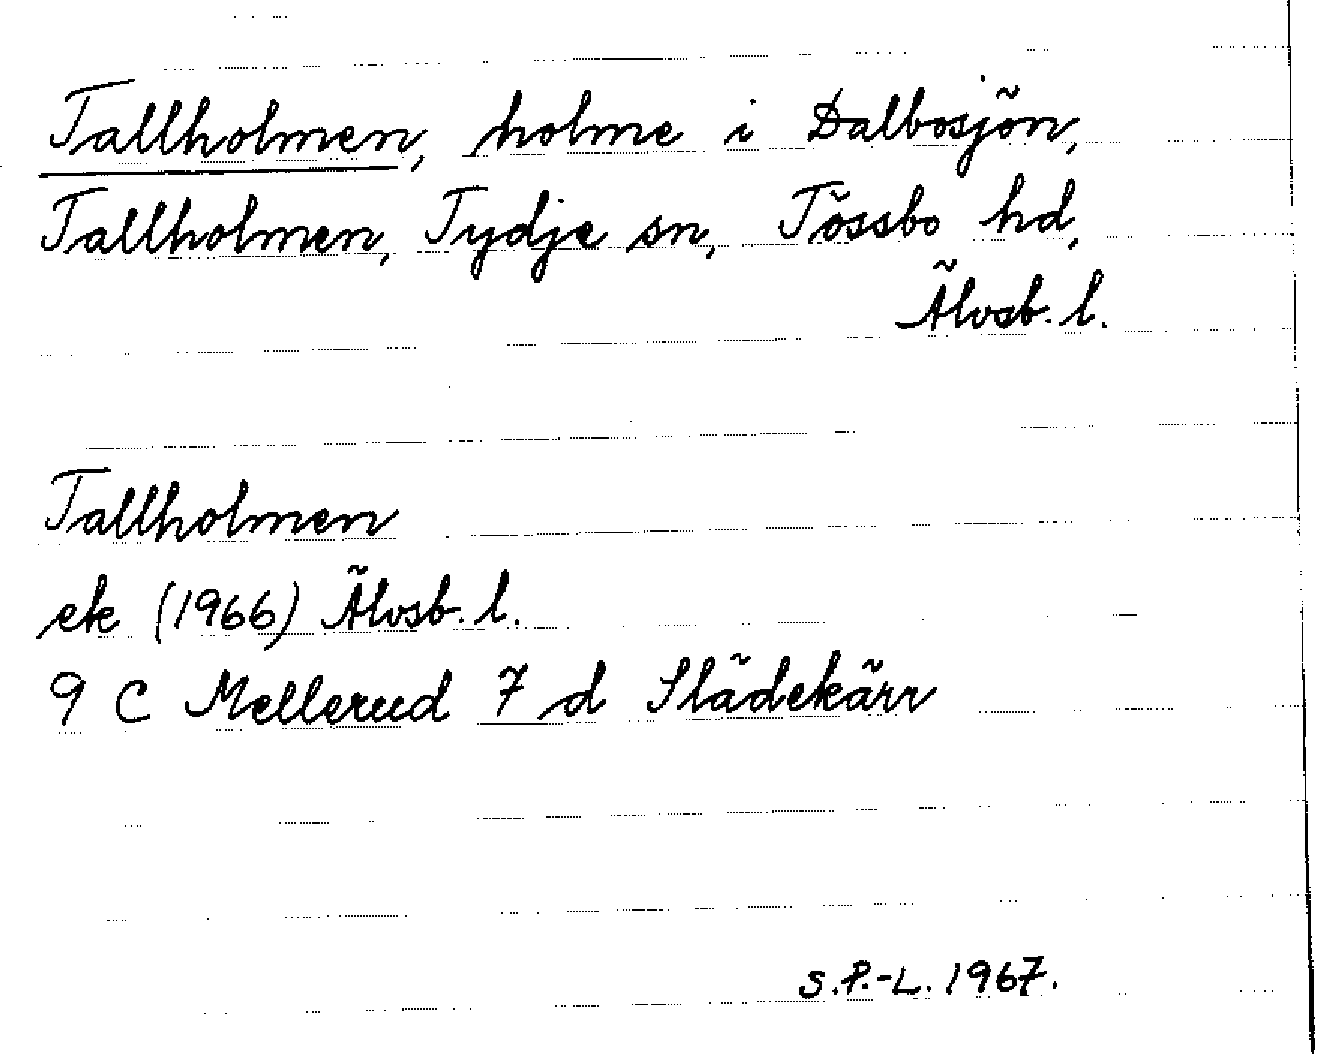 Tallholmen, holme i Dalbosjön,
Tallholmen, Tydje sn, Tössbo hd,
Älvsb. l.
Tallholmen
ek (1966) Älvsb. l.
9 C Mellerud 7 d Slädekärr
S.P.-L. 1967.